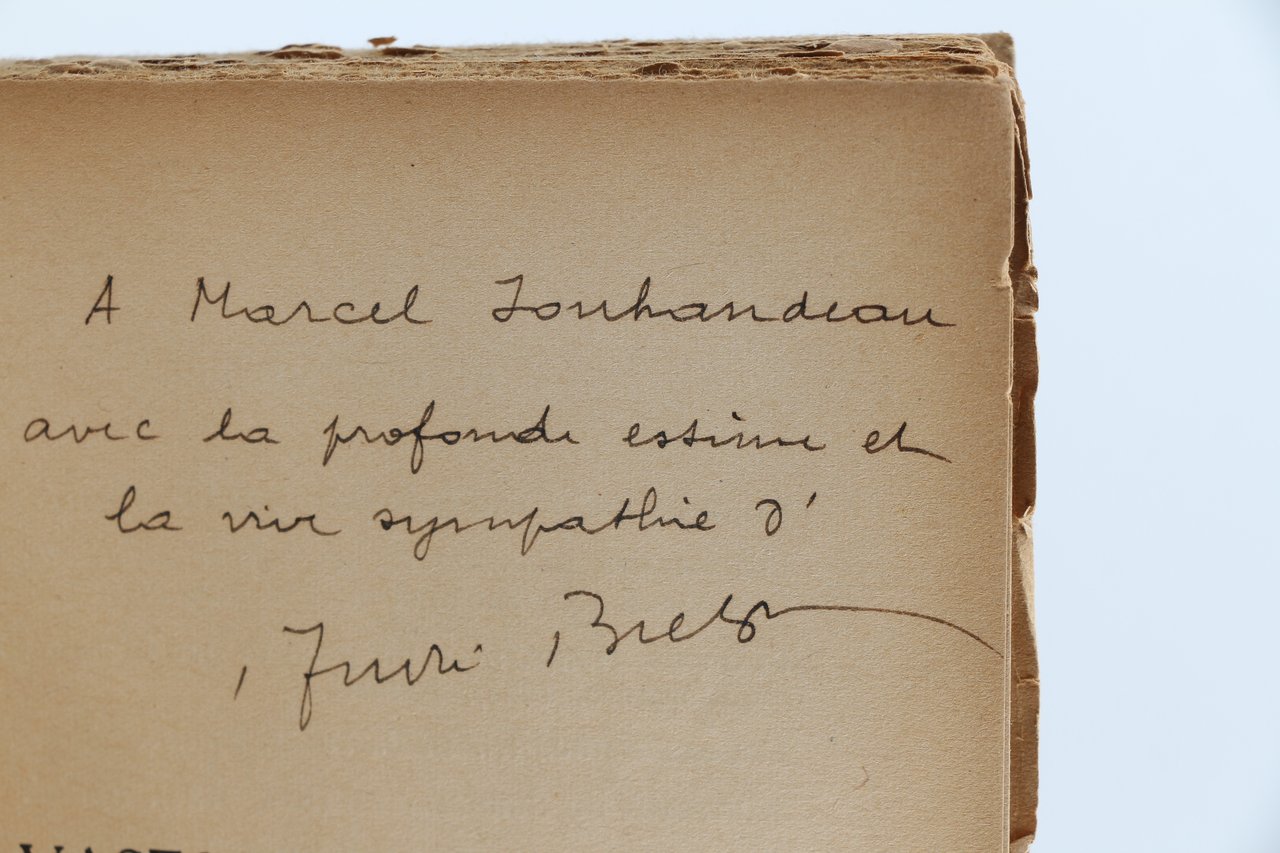 A Marcel Jouhandeau
avec la profonde estime et
la vive sympathie d'
André Breton